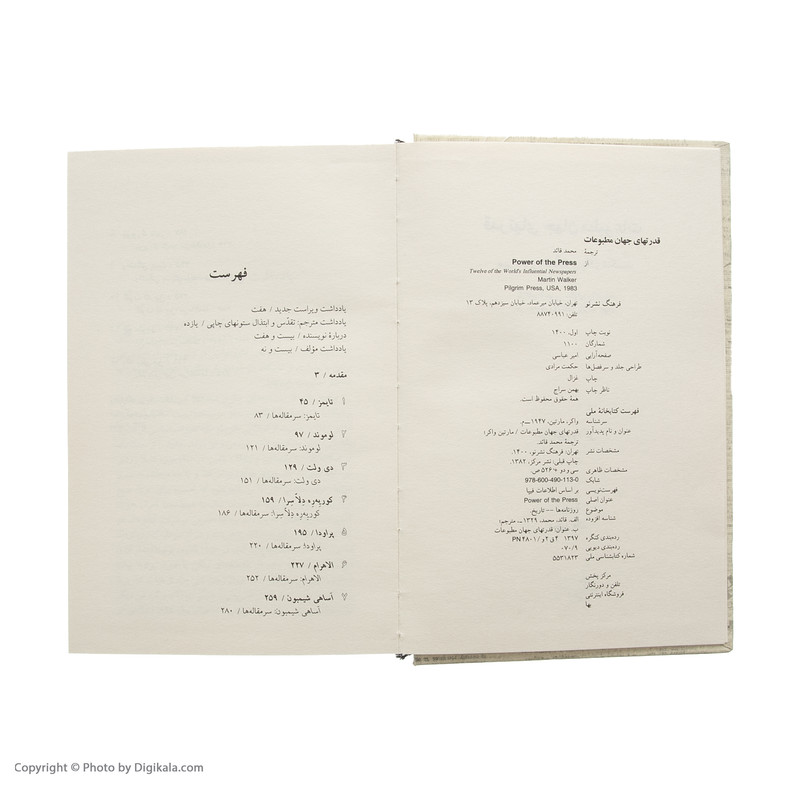 قدرتهای جهان مطبوعات
ترجمهٔ محمد قائد
از Power of the Press
Twelve of the World's Influential Newspapers
Martin Walker
Pilgrim Press, USA, 1983
فرهنگ نشرنو تهران، خیابان میرعماد، خیابان سیزدهم، پلاک ۱۳
تلفن: ۸۸۷۴۰۹۹۱
نوبت چاپ اول، ۱۴۰۰
شمارگان ۱۱۰۰
صفحه‌آرایی امیر عباسی
طراحی جلد و سرفصل‌ها حکمت مرادی
چاپ غزال
ناظر چاپ بهمن سراج
همهٔ حقوق محفوظ است.
فهرست کتابخانهٔ ملی
سرشناسه واکر، مارتین، ۱۹۴۷–م.
عنوان و نام پدیدآور قدرتهای جهان مطبوعات / مارتین واکر؛
ترجمهٔ محمد قائد.
مشخصات نشر تهران، فرهنگ نشرنو، ۱۴۰۰.
چاپ قبلی: نشر مرکز، ۱۳۸۲.
مشخصات ظاهری سی و دو + ۵۲۶ ص.
شابک 978-600-490-113-0
فهرست‌نویسی بر اساس اطلاعات فیپا
عنوان اصلی Power of the Press
موضوع روزنامه‌ها -- تاریخ.
شناسه افزوده الف. قائد، محمد، ۱۳۲۹–، مترجم؛
ب. عنوان: قدرتهای جهان مطبوعات
رده‌بندی کنگره ۱۳۹۷ ۴ق۲و/PN ۴۸۰۱
رده‌بندی دیویی ۰۷۰/۹
شماره کتابشناسی ملی ۵۵۳۱۸۲۳
مرکز پخش
تلفن و دورنگار
فروشگاه اینترنتی
بها
فهرست
یادداشت ویراست جدید / هفت
یادداشت مترجم: تقدّس و ابتذال ستونهای چاپی / یازده
دربارهٔ نویسنده / بیست و هفت
یادداشت مؤلف / بیست و نه
مقدمه / ۳
۱ تایمز / ۴۵
تایمز: سرمقاله‌ها / ۸۳
۲ لوموند / ۹۷
لوموند: سرمقاله‌ها / ۱۲۱
۳ دی ولت / ۱۲۹
دی ولت: سرمقاله‌ها / ۱۵۱
۴ کوریه‌ره دِلاّ سِرا / ۱۵۹
کوریه‌ره دِلاّ سِرا: سرمقاله‌ها / ۱۸۶
۵ پراودا / ۱۹۵
پراودا: سرمقاله‌ها / ۲۲۰
۶ الاهرام / ۲۲۷
الاهرام: سرمقاله‌ها / ۲۵۲
۷ آساهی شیمبون / ۲۵۹
آساهی شیمبون: سرمقاله‌ها / ۲۸۰
Copyright © Photo by Digikala.com